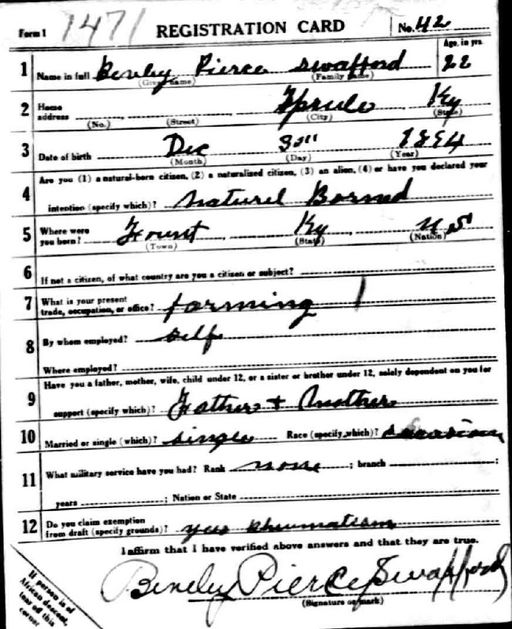 Form 1 1471 REGISTRATION CARD No. 42
1 Name in full Benely Pierce Swafford Age, in yrs. 22
(Given name) (Family name)
2 Home address Sprule Ky
(No.) (Street) (City) (State)
3 Date of birth Dec 1894
(Month) (Day) (Year)
Are you (1) a natural-born citizen, (2) a naturalized citizen, (3) an alien, (4) or have you declared your
4 intention (specify which)? Naturel Borned
5 Where were you born? Fount Ky US
(Town) (State) (Nation)
6 If not a citizen, of what country are you a citizen or subject?
7 What is your present trade, occupation, or office? farming
8 By whom employed? self
Where employed?
Have you a father, mother, wife, child under 12, or a sister or brother under 12, solely dependent on you for
9 support (specify which)? Father + Mother
10 Married or single (which)? single Race (specify which)?
11 What military service have you had? Rank none ; branch ;
years ; Nation or State
12 Do you claim exemption from draft (specify grounds)? yes
I affirm that I have verified above answers and that they are true.
Benely Pierce Swafford
(Signature or mark)
If person is of
African descent,
tear off this
corner.